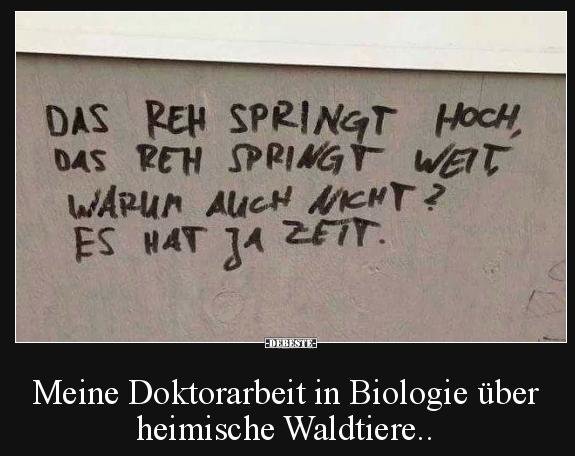 DAS REH SPRINGT HOCH,
DAS REH SPRINGT WEIT,
WARUM AUCH NICHT?
ES HAT JA ZEIT.
-DEBESTE-
Meine Doktorarbeit in Biologie über
heimische Waldtiere..